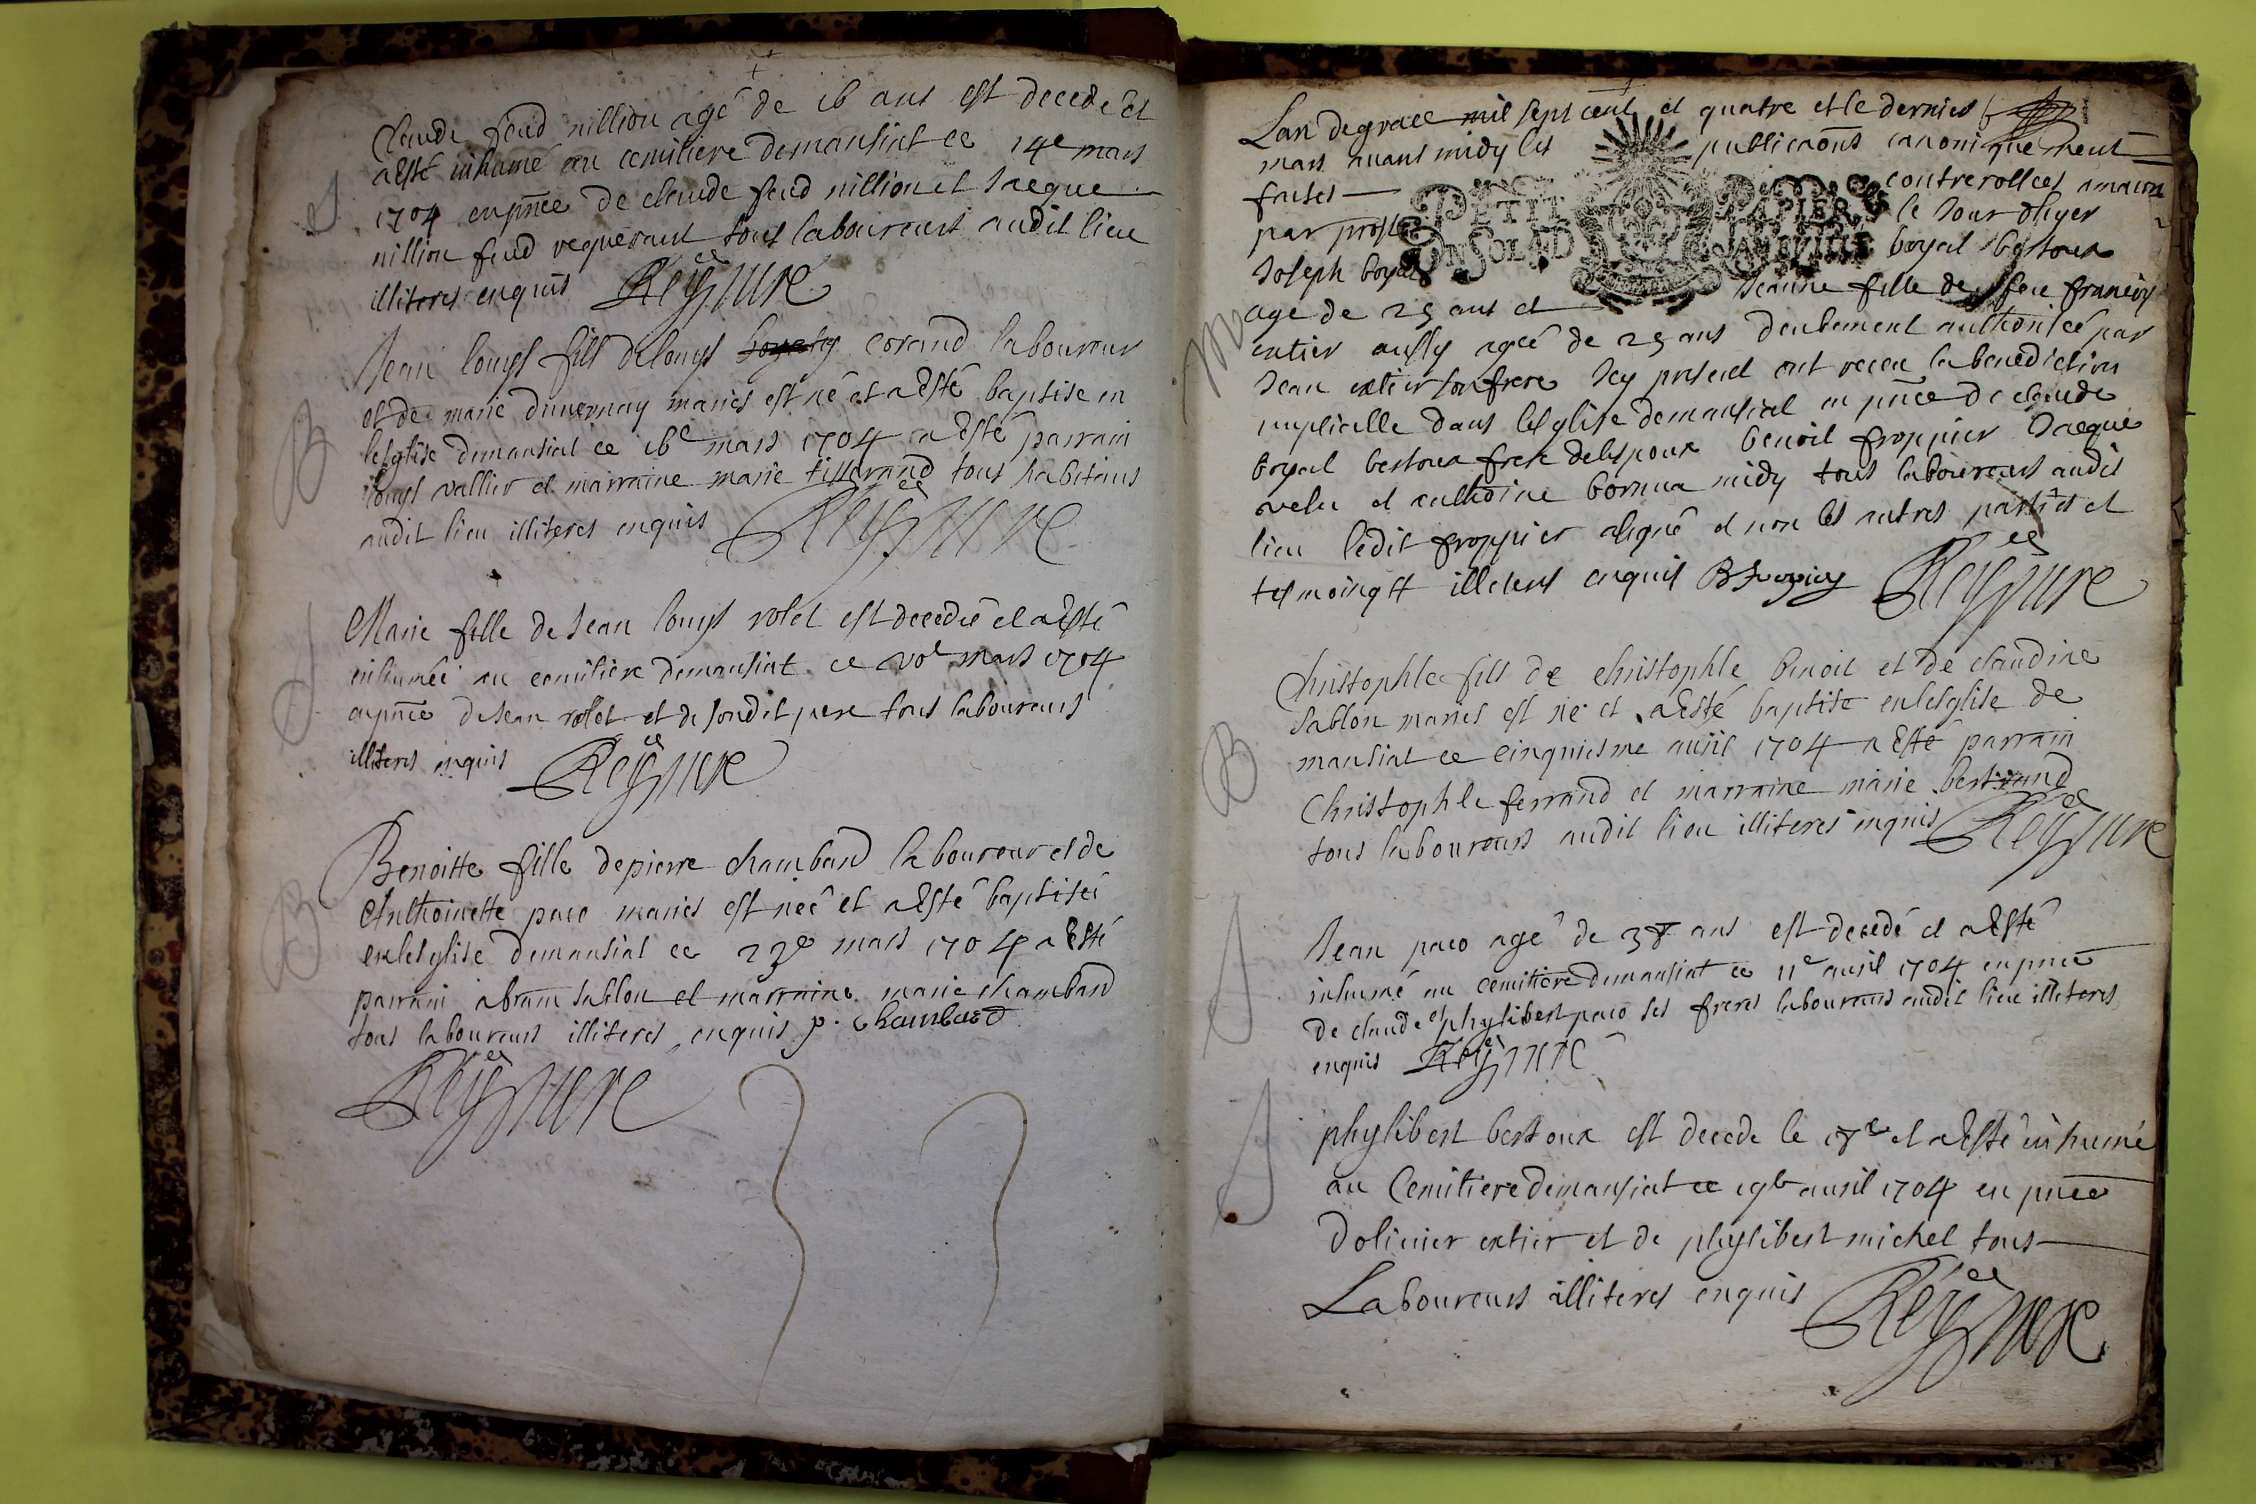 Claude feud nillion agé de 16 ans est decede et
a esté inhumé au cemitiere demansiat ce 14e mars
1704 en pnce de claude feud nillion et Jacque
nillion feud requerant tous laboureurs audit lieu
illiteres enquis Reyssure
Jean louys fils de louys corand laboureur
et de marie duvernay maries est né et a esté baptise en
leglise demansiat ce 16e mars 1704 a esté parrain
louys vallier et marraine marie tisserand tous habitans
audit lieu illiteres enquis Reyssure
Marie fille de Jean louys rolet est decedée et a esté
inhumée au cemitiere demansiat ce mars 1704
en pnce de Jean rolet et de sondit pere tous laboureurs
illiteres enquis Reyssure
Benoitte fille de pierre chambard laboureur et de
Anthoinette paco maries est née et a esté baptisée
en leglise demansiat ce 23e mars 1704 a esté
parrain abram sablon et marraine marie chambard
tous laboureurs illiteres enquis p. chambard
Reyssure
Lan de grace mil sept cent et quatre et le dernier
mars avant midy les publicaons canoniquement
faites controrollees
par le Sour oliyer
PETIT PAPIER
UN SOL LA D
Joseph boyat boyat bertoux
age de 25 ans et Jeanne fille de feu francoy
extier aussy agée de 25 ans deubement authorisée par
Jean extier son frere Icy present ont receu la benediction
nuptialle dans leglise demansiat en pnce de claude
boyat bertoux frere de lespoux benoit froppier Jacque
velu et anthoine bornua midy tous laboureurs audit
lieu ledit froppier a signé et non les autres parties et
tesmoings illeteres enquis B froppier Reyssure
Christophle fils de christophle benoit et de claudine
sablon maries est né et a esté baptise en leglise de
mansiat ce cinquiesme avril 1704 a esté parrain
Christophle ferrand et marraine marie bertrand
tous laboureurs audit lieu illiteres enquis Reyssure
Jean paco agé de 38 ans est decedé et a esté
inhumé au cemitiere demansiat ce 11e avril 1704 en pnce
de claude et phylibert paco ses freres laboureurs audit lieu illiteres
enquis Reyssure
phylibert bertoux est decede le 18e et a esté inhumé
au Cemitiere demansiat ce 19e avril 1704 en pnce
dolivier extier et de phylibert michel tous
Laboureurs illiteres enquis Reyssure